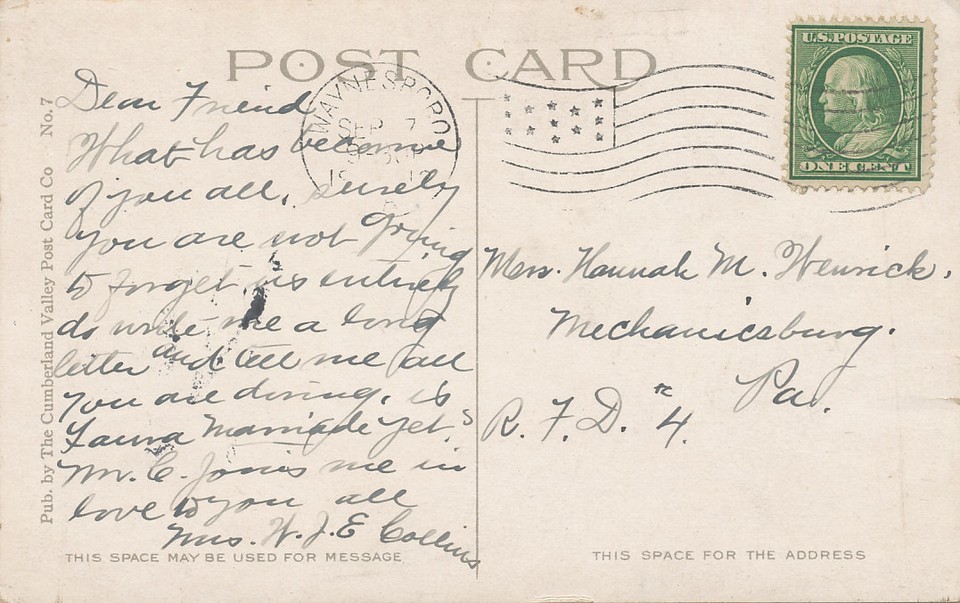 POST CARD
U.S. POSTAGE
ONE CENT
WAYNESBORO
SEP 7
Pub. by The Cumberland Valley Post Card Co No. 7
Dear Friend
What has become
of you all, surely
you are not going
to forget us entirely
do write me a long
letter and tell me all
you are doing. is
Laura Married yet.
Mr. C. Joins me in
love to you all
Mrs. W. J. E Collins
THIS SPACE MAY BE USED FOR MESSAGE
Mrs. Hannah M. Wenrick.
Mechanicsburg.
Pa.
R. F. D. # 4.
THIS SPACE FOR THE ADDRESS